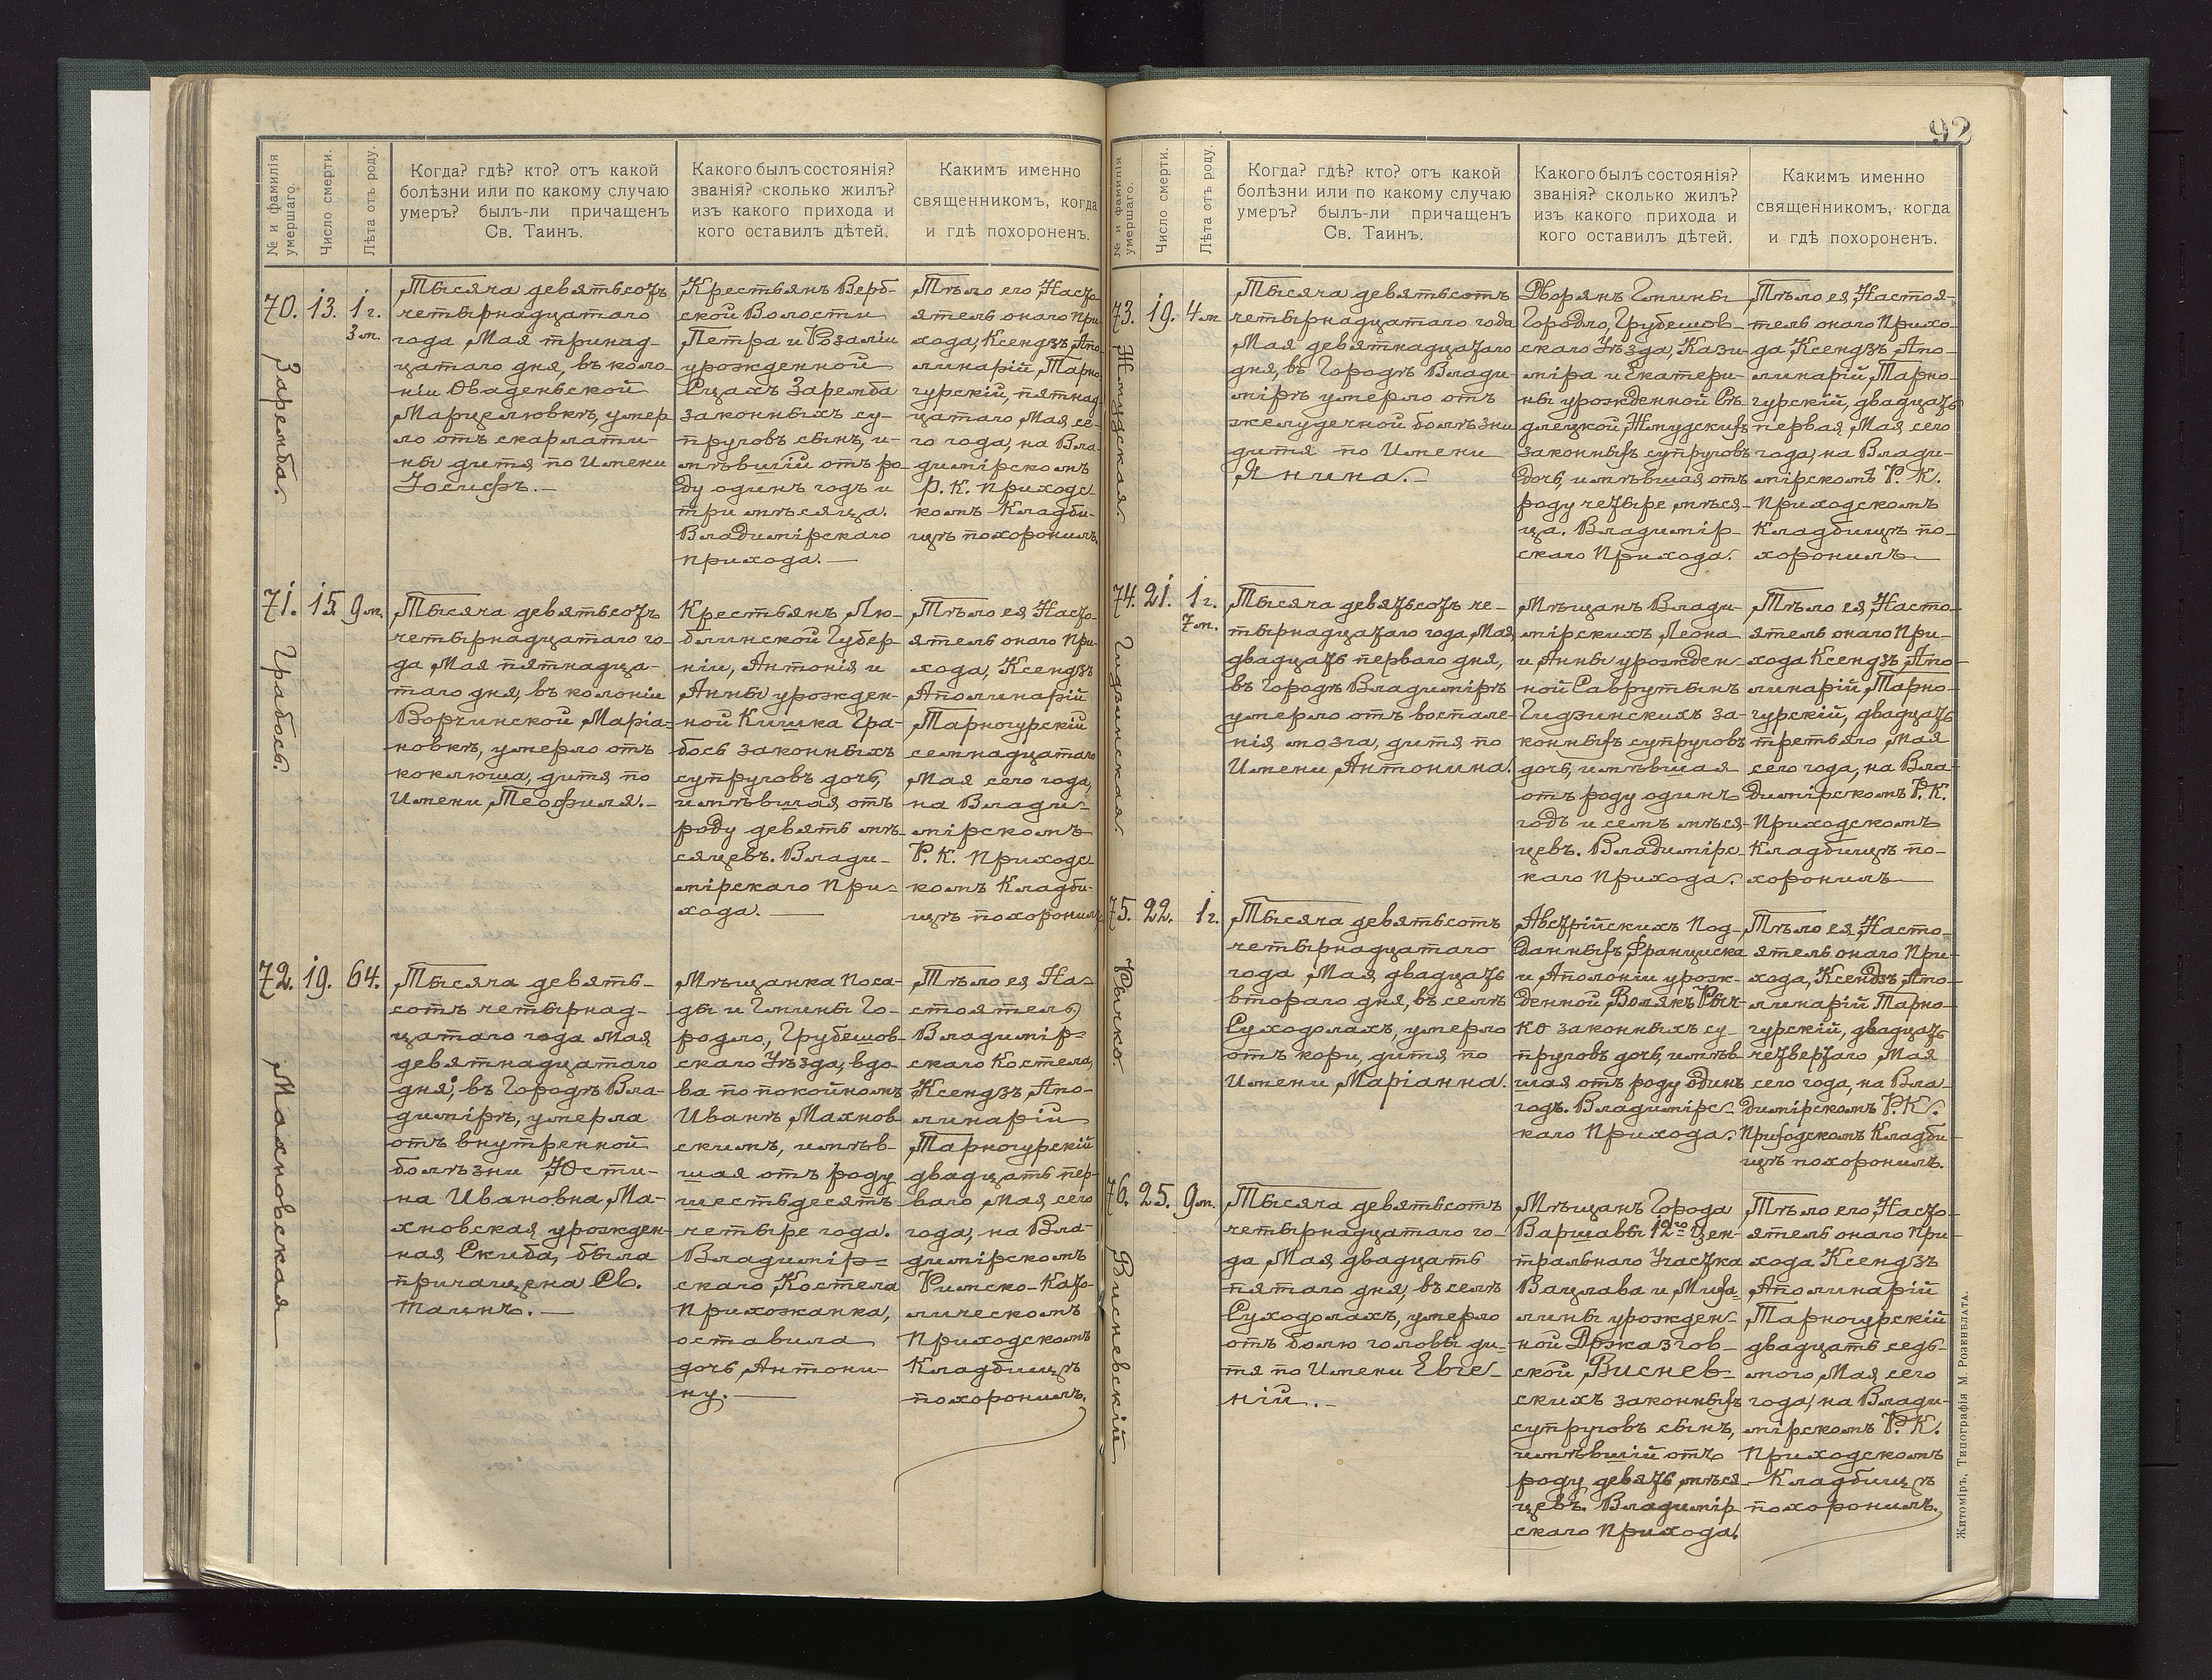 92
№ и фамилія умершаго.
Число смерти.
Лѣта отъ роду.
Когда? гдѣ? кто? отъ какой
болѣзни или по какому случаю
умеръ? былъ-ли причащенъ
Св. Таинъ.
Какого былъ состоянія?
званія? сколько жилъ?
изъ какого прихода и
кого оставилъ дѣтей.
Какимъ именно
священникомъ, когда
и гдѣ похороненъ.
70.
Заремба.
13.
1 г.
3 м.
Тысяча девятьсотъ
четырнадцатаго
года Мая тринад-
цатаго дня, въ коло-
ніи Оваденьской
Марцелювкѣ, умер
ло отъ скарлати-
ны дитя по Имени
Іосифъ.—
Крестьянъ Верб-
ской Волости
Петра и Розаліи
урожденной
Сцахъ Заремба
законныхъ су-
пруговъ сынъ, и-
мѣвшій отъ ро-
ду одинъ годъ и
три мѣсяца.
Владимірскаго
прихода.—
Тѣло его Насто-
ятель онаго При-
хода, Ксендзъ Апо-
линарій Тарно-
гурскій, пятнад-
цатаго Мая се-
го года, на Вла-
димірскомъ
Р. К. Приходс-
комъ Кладби-
щѣ похоронилъ.
71.
Грабось.
15.
9 м.
Тысяча девятьсотъ
четырнадцатаго го-
да Мая пятнадца-
таго дня, въ колоніи
Ворчинской Маріа-
новкѣ, умерло отъ
коклюша, дитя по
Имени Теофиля.—
Крестьянъ Лю-
блинской Губер-
ніи, Антонія и
Анны урожден-
ной Кишка Гра-
бось законныхъ
супруговъ дочь,
имѣвшая отъ
роду девять мѣ-
сяцевъ. Влади-
мірскаго При-
хода.—
Тѣло ея Насто-
ятель онаго При-
хода, Ксендзъ
Аполинарій
Тарногурскій
семнадцатаго
Мая сего года,
на Влади-
мірскомъ
Р. К. Приходс-
комъ Кладби-
щѣ похоронилъ
72.
Махновская
19.
64.
Тысяча девять-
сотъ четырнад-
цатаго года Мая
девятнадцатаго
дня, въ Городѣ Вла-
димірѣ, умерла
отъ внутренной
болѣзни Юсти-
на Ивановна Ма-
хновская, урожден-
ная Скиба, была
причащена Св.
Таинъ.—
Мѣщанка Поса-
ды и Гмины Го-
родло, Грубешов-
скаго Уѣзда, вдо-
ва по покойномъ
Иванѣ Махнов
скимъ, имѣв-
шая отъ роду
шестьдесятъ
четыре года.
Владимір-
скаго Костела
Прихожанка,
оставила
дочь Антони-
ну.—
Тѣло ея На-
стоятель
Владимір-
скаго Костела,
Ксендзъ Апо-
линарій
Тарногурскій
двадцать пер-
ваго Мая сего
года, на Вла-
димірскомъ
Римско-Като-
лическомъ
Приходскомъ
Кладбищѣ
похоронилъ.
№ и фамилія умершаго.
Число смерти.
Лѣта отъ роду.
Когда? гдѣ? кто? отъ какой
болѣзни или по какому случаю
умеръ? былъ-ли причащенъ
Св. Таинъ.
Какого былъ состоянія?
званія? сколько жилъ?
изъ какого прихода и
кого оставилъ дѣтей.
Какимъ именно
священникомъ, когда
и гдѣ похороненъ.
73.
Жмудская.
19.
4 м
Тысяча девятьсотъ
четырнадцатаго года
Мая девятнадцатаго
дня, въ Городѣ Влади-
мірѣ умерло отъ
желудочной болѣзни
дитя по Имени
Янина.—
Дворянъ Гмины
Городло, Грубешов-
скаго Уѣзда, Кази-
міра и Екатери-
ны урожденной Сѣ-
длецкой, Жмудскихъ
законныхъ супруговъ
дочь, имѣвшая отъ
роду четыре мѣся-
ца. Владимір-
скаго Прихода.
Тѣло ея, Настоя-
тель онаго Прихо-
да Ксендзъ Апо-
линарій Тарно-
гурскій, двадцать
первая Мая сего
года, на Влади-
мірскомъ Р. К.
Приходскомъ
Кладбищѣ по-
хоронилъ—
74.
Гидзинская.
21.
1 г.
7 м.
Тысяча девятьсотъ че-
тырнадцатаго года, Мая
двадцать перваго дня,
въ Городѣ Владимірѣ
умерло отъ воспале-
нія мозга, дитя по
Имени Антонина.
Мѣщанъ Влади-
мірскихъ Леона
и Анны урожден-
ной Саврутынъ
Гидзинскихъ за-
конныхъ супруговъ
дочь, имѣвшая
отъ роду одинъ
годъ и семъ мѣся-
цевъ. Владимірс-
каго Прихода.
Тѣло ея, Насто-
ятель онаго При-
хода Ксендзъ Апо-
линарій Тарно-
гурскій, двадцать
третьяго Мая
сего года, на Вла-
димірскомъ Р. К.
Приходскомъ
Кладбищѣ по-
хоронилъ—
75.
Рычко.
22.
1 г.
Тысяча девятьсотъ
четырнадцатаго
года Мая двадцать
втораго дня, въ селѣ
Суходолахъ, умерло
отъ кори, дитя по
Имени Маріанна.
Австрійскихъ Под-
данныхъ Франциска
и Аполоніи урож-
денной Волякъ Рыч-
ко законныхъ су-
пруговъ дочь, имѣв-
шая отъ роду одинъ
годъ. Владимірс-
каго Прихода.
Тѣло ея, Насто-
ятель онаго При-
хода, Ксендзъ Апо-
линарій Тарно-
гурскій, двадцать
четвертаго Мая
сего года, на Вла-
димірскомъ Р. К.
Приходскомъ Кладби-
щѣ похоронилъ.
76.
Висневскій
25.
9 м.
Тысяча девятьсотъ
четырнадцатаго го-
да Мая двадцать
пятаго дня, въ селѣ
Суходолахъ, умерло
отъ болю головы ди-
тя по Имени Евге-
ній.—
Мѣщанъ Города
Варшавы 12го Цен-
тральнаго Участка
Вацлава и Миха-
лины урожден-
ной Држазгов-
ской Виснев-
скихъ законныхъ
супруговъ сынъ,
имѣвшій отъ
роду девять мѣся-
цевъ. Владимір
скаго Прихода.
Тѣло его, Насто-
ятель онаго При-
хода Ксендзъ
Аполинарій
Тарногурскій
двадцать седь-
мого Мая сего
года, на Влади-
мірскомъ Р. К.
Приходскомъ
Кладбищѣ
похоронилъ.
Житоміръ, Типографія М. Розенблата.